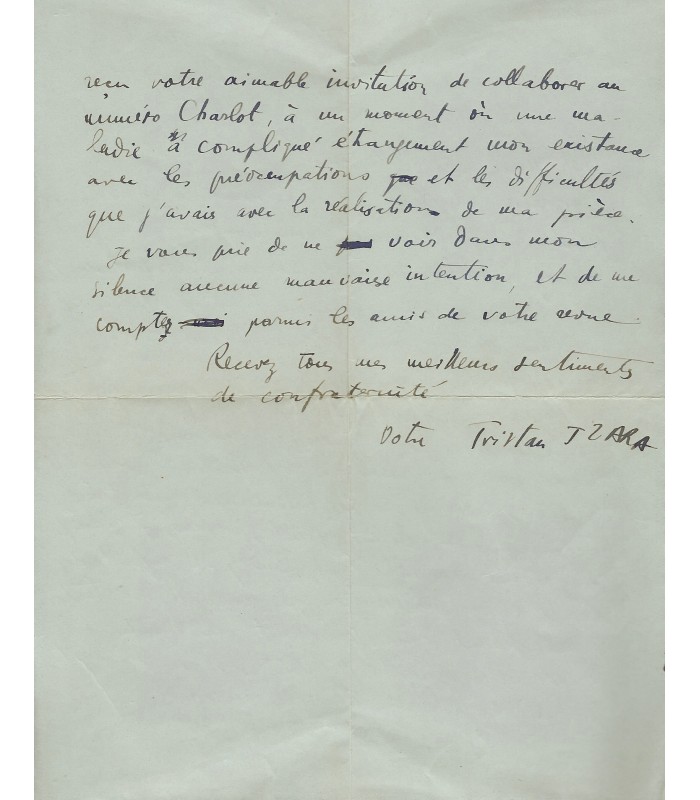 reçu votre aimable invitation de collaborer au
numéro Charlot, à un moment où une ma-
ladie m'a compliqué étrangement mon existence
avec les préoccupations que et les difficultés
que j'avais avec la réalisation de ma pièce.
Je vous prie de ne pas voir dans mon
silence aucune mauvaise intention, et de me
comptez parmi les amis de votre revue.
Recevez tous mes meilleurs sentiments
de confraternité
Votre Tristan TZARA